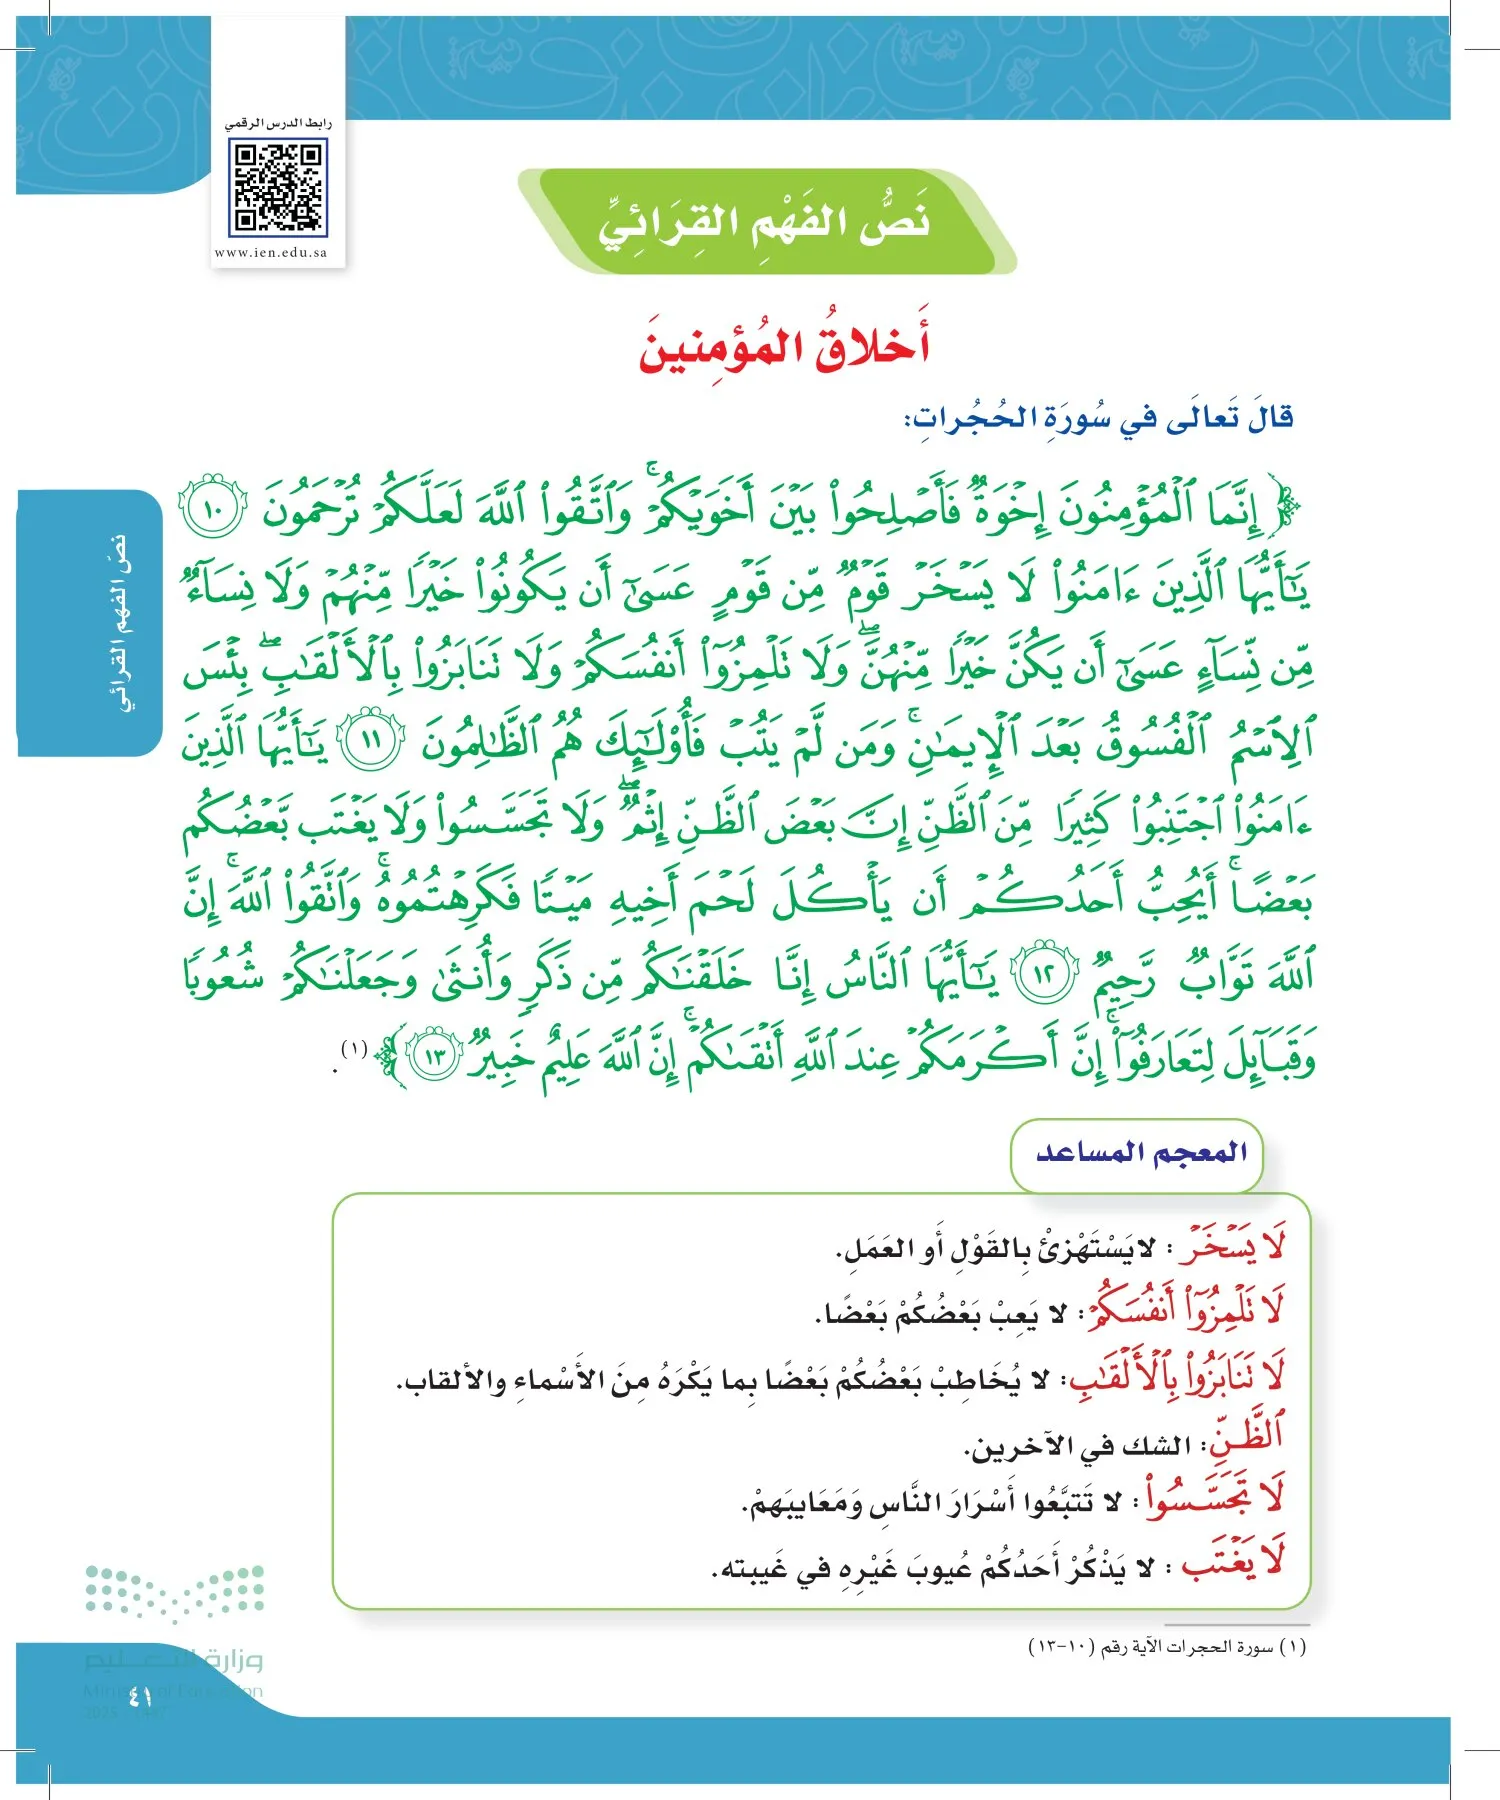 رابط الدرس الرقمي
www.ien.edu.sa
نَصُّ الفَهْمِ القِرَائِيِّ
أَخلاقُ المُؤمِنينَ
قالَ تَعالَى في سُورَةِ الحُجُراتِ:
﴿ إِنَّمَا ٱلْمُؤْمِنُونَ إِخْوَةٌ فَأَصْلِحُوا۟ بَيْنَ أَخَوَيْكُمْ ۚ وَٱتَّقُوا۟ ٱللَّهَ لَعَلَّكُمْ تُرْحَمُونَ ١٠
يَـٰٓأَيُّهَا ٱلَّذِينَ ءَامَنُوا۟ لَا يَسْخَرْ قَوْمٌ مِّن قَوْمٍ عَسَىٰٓ أَن يَكُونُوا۟ خَيْرًا مِّنْهُمْ وَلَا نِسَآءٌ
مِّن نِّسَآءٍ عَسَىٰٓ أَن يَكُنَّ خَيْرًا مِّنْهُنَّ ۖ وَلَا تَلْمِزُوٓا۟ أَنفُسَكُمْ وَلَا تَنَابَزُوا۟ بِٱلْأَلْقَـٰبِ ۖ بِئْسَ
ٱلِٱسْمُ ٱلْفُسُوقُ بَعْدَ ٱلْإِيمَـٰنِ ۚ وَمَن لَّمْ يَتُبْ فَأُو۟لَـٰٓئِكَ هُمُ ٱلظَّـٰلِمُونَ ١١ يَـٰٓأَيُّهَا ٱلَّذِينَ
ءَامَنُوا۟ ٱجْتَنِبُوا۟ كَثِيرًا مِّنَ ٱلظَّنِّ إِنَّ بَعْضَ ٱلظَّنِّ إِثْمٌ ۖ وَلَا تَجَسَّسُوا۟ وَلَا يَغْتَب بَّعْضُكُم
بَعْضًا ۚ أَيُحِبُّ أَحَدُكُمْ أَن يَأْكُلَ لَحْمَ أَخِيهِ مَيْتًا فَكَرِهْتُمُوهُ ۚ وَٱتَّقُوا۟ ٱللَّهَ ۚ إِنَّ
ٱللَّهَ تَوَّابٌ رَّحِيمٌ ١٢ يَـٰٓأَيُّهَا ٱلنَّاسُ إِنَّا خَلَقْنَـٰكُم مِّن ذَكَرٍ وَأُنثَىٰ وَجَعَلْنَـٰكُمْ شُعُوبًا
وَقَبَآئِلَ لِتَعَارَفُوٓا۟ ۚ إِنَّ أَكْرَمَكُمْ عِندَ ٱللَّهِ أَتْقَىٰكُمْ ۚ إِنَّ ٱللَّهَ عَلِيمٌ خَبِيرٌ ١٣ ﴾ (١).
نصّ الفهم القرائي
المعجم المساعد
لَا يَسْخَرْ : لايَسْتَهْزِئْ بِالقَوْلِ أَو العَمَلِ.
لَا تَلْمِزُوٓا۟ أَنفُسَكُمْ: لا يَعِبْ بَعْضُكُمْ بَعْضًا.
لَا تَنَابَزُوا۟ بِٱلْأَلْقَـٰبِ: لا يُخَاطِبْ بَعْضُكُمْ بَعْضًا بِما يَكْرَهُ مِنَ الأَسْماءِ والألقاب.
ٱلظَّنِّ: الشك في الآخرين.
لَا تَجَسَّسُوا۟ : لا تَتبَّعُوا أَسْرَارَ النَّاسِ وَمَعَايبَهمْ.
لَا يَغْتَب : لا يَذْكُرْ أَحَدُكُمْ عُيوبَ غَيْرِهِ في غَيبته.
(١) سورة الحجرات الآية رقم (١٠-١٣)
وزارة التعليم
Ministry of Education
٤١